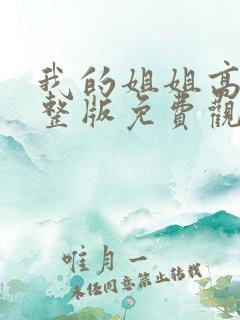 我的姐姐高
整版免費觀
唯月一
未经同意禁止转载